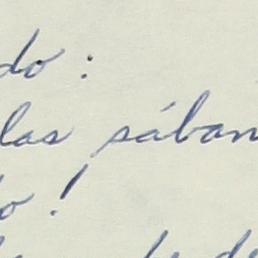 do :
las sában
o !